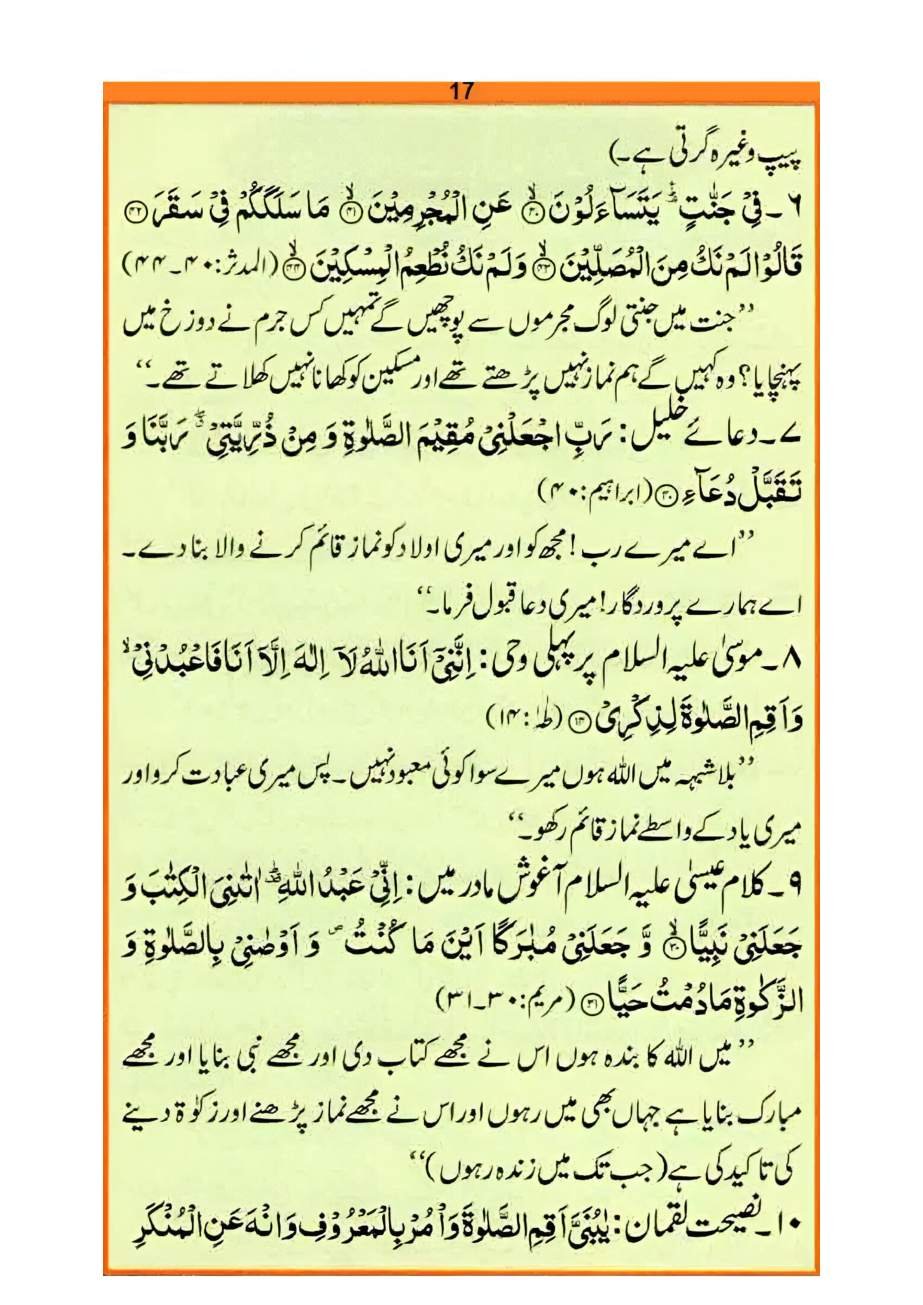 17
پیپ وغیرہ گرتی ہے۔)
۶۔ فِیْ جَنّٰتٍ ۛؕ یَتَسَآءَلُوْنَ ﴿۴۰﴾ۙ عَنِ الْمُجْرِمِیْنَ ﴿۴۱﴾ۙ مَا سَلَكَكُمْ فِیْ سَقَرَ ﴿۴۲﴾
قَالُوْا لَمْ نَكُ مِنَ الْمُصَلِّیْنَ ﴿۴۳﴾ۙ وَلَمْ نَكُ نُطْعِمُ الْمِسْكِیْنَ ﴿۴۴﴾ۙ (المدثر:۴۰۔۴۴)
’’جنت میں جنتی لوگ مجرموں سے پوچھیں گے تمہیں کس جرم نے دوزخ میں
پہنچایا؟ وہ کہیں گے ہم نماز نہیں پڑھتے تھے اور مسکین کو کھانا نہیں کھلاتے تھے۔‘‘
۷۔ دعائے خلیل: رَبِّ اجْعَلْنِیْ مُقِیْمَ الصَّلٰوةِ وَ مِنْ ذُرِّیَّتِیْ ۖۗ رَبَّنَا وَ
تَقَبَّلْ دُعَآءِ ﴿۴۰﴾ (ابراہیم:۴۰)
’’اے میرے رب! مجھ کو اور میری اولاد کو نماز قائم کرنے والا بنا دے۔
اے ہمارے پروردگار! میری دعا قبول فرما۔‘‘
۸۔ موسیٰ علیہ السلام پر پہلی وحی: اِنَّنِیْۤ اَنَا اللّٰهُ لَاۤ اِلٰهَ اِلَّاۤ اَنَا فَاعْبُدْنِیْ ۙ
وَ اَقِمِ الصَّلٰوةَ لِذِكْرِیْ ﴿۱۴﴾ (طہٰ:۱۴)
’’بلاشبہہ میں اللہ ہوں میرے سوا کوئی معبود نہیں۔ پس میری عبادت کرو اور
میری یاد کے واسطے نماز قائم رکھو۔‘‘
۹۔ کلام عیسیٰ علیہ السلام آغوش مادر میں: اِنِّیْ عَبْدُ اللّٰهِ ۫ؕ اٰتٰىنِیَ الْكِتٰبَ وَ
جَعَلَنِیْ نَبِیًّا ﴿۳۰﴾ۙ وَّ جَعَلَنِیْ مُبٰرَكًا اَیْنَ مَا كُنْتُ ۪ وَ اَوْصٰنِیْ بِالصَّلٰوةِ وَ
الزَّكٰوةِ مَا دُمْتُ حَیًّا ﴿۳۱﴾ (مریم:۳۰۔۳۱)
’’میں اللہ کا بندہ ہوں اس نے مجھے کتاب دی اور مجھے نبی بنایا اور مجھے
مبارک بنایا ہے جہاں بھی میں رہوں اور اس نے مجھے نماز پڑھنے اور زکوٰۃ دینے
کی تاکید کی ہے (جب تک میں زندہ رہوں)‘‘
۱۰۔ نصیحت لقمان: یٰبُنَیَّ اَقِمِ الصَّلٰوةَ وَاْمُرْ بِالْمَعْرُوْفِ وَانْهَ عَنِ الْمُنْكَرِ